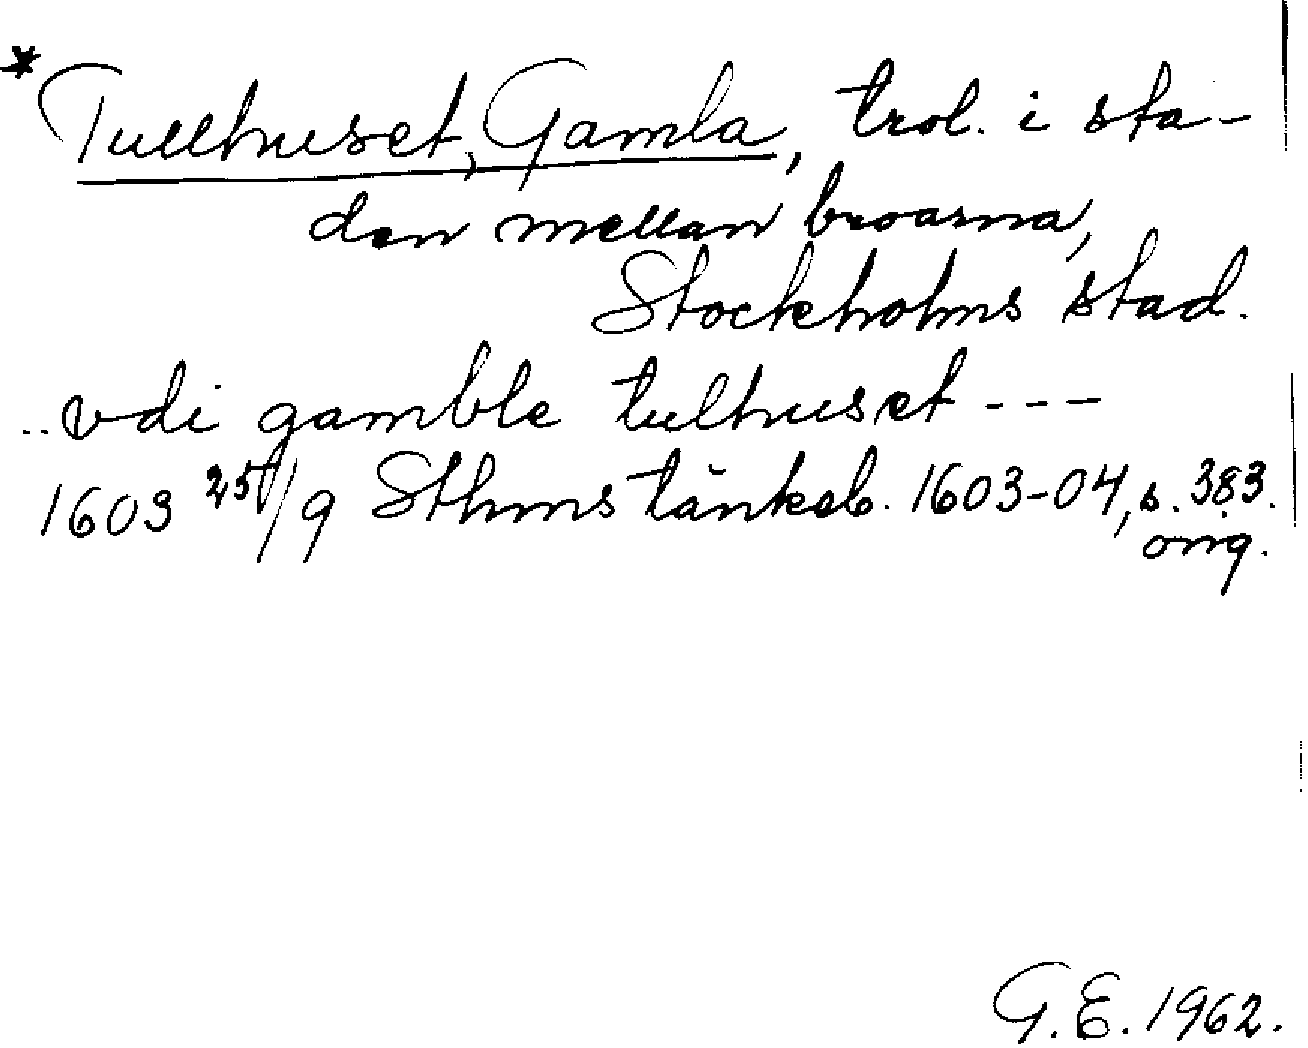 * Tullhuset, Gamla, trol. i sta-
den mellan broarna,
Stockholms stad.
.. vdi gamble tulhuset ---
1603 25/9 Sthms tänkeb. 1603-04, s. 383.
orig.
G.E. 1962.